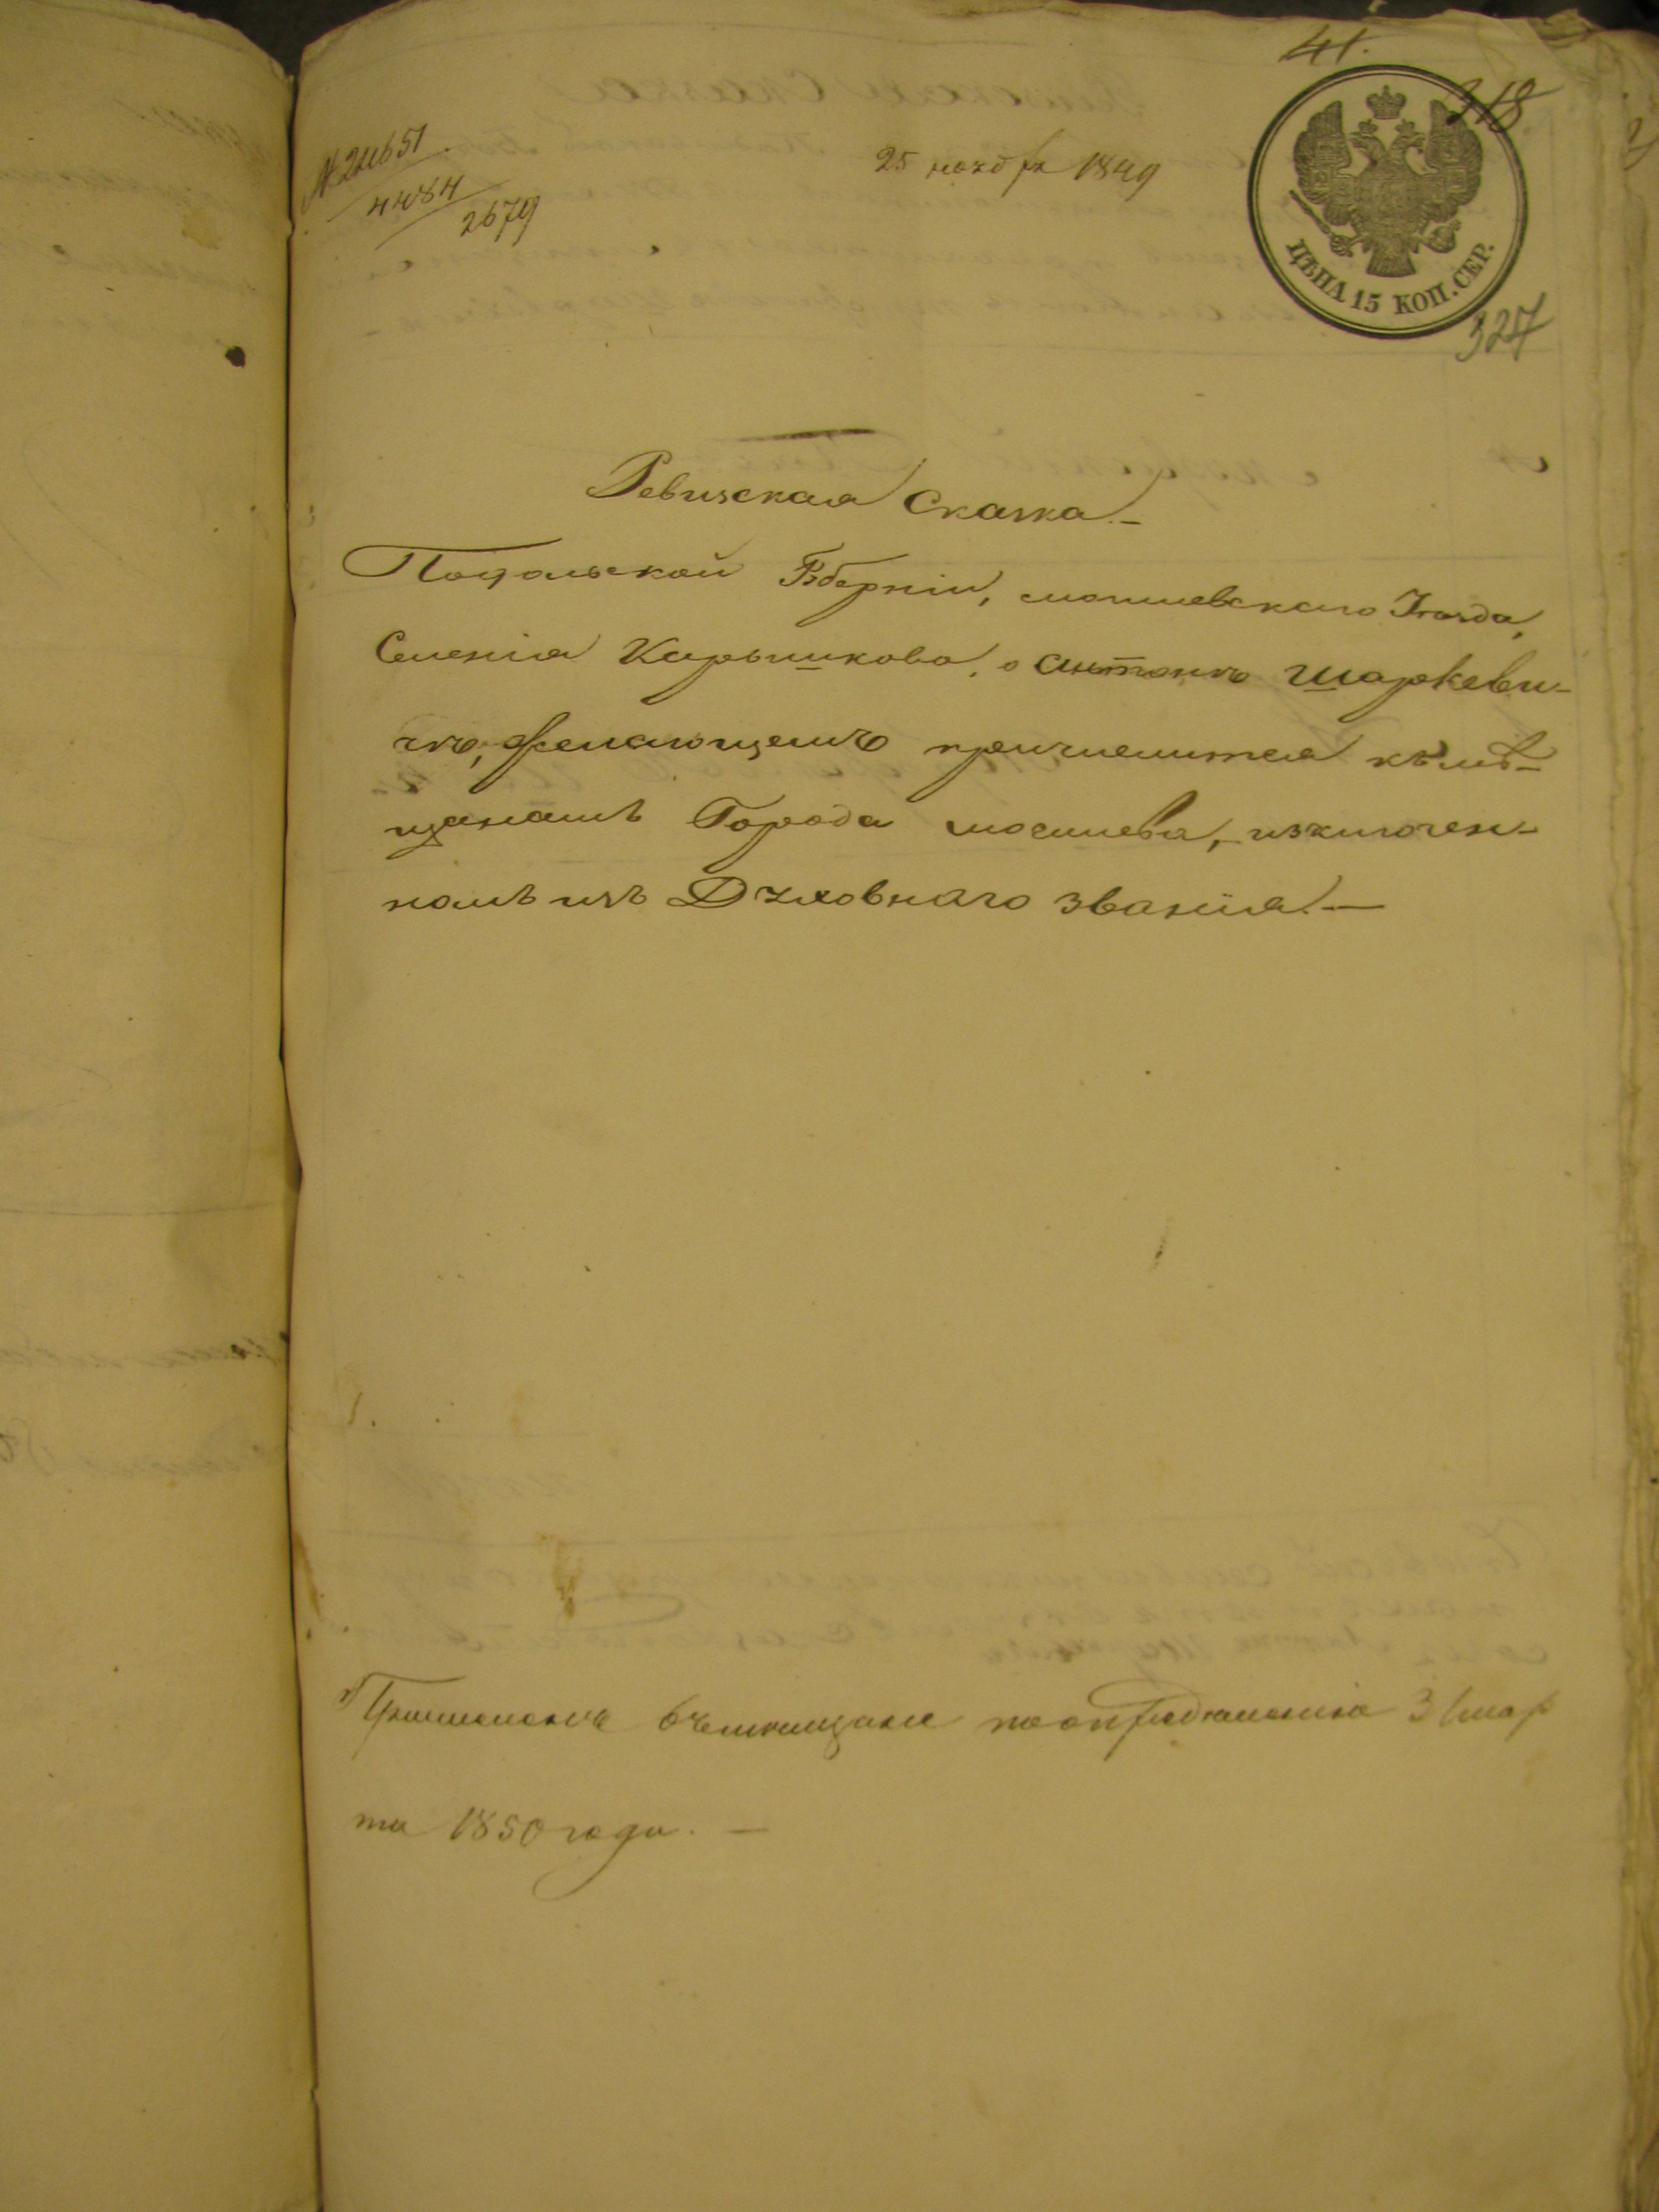 41.
318
№ 24651
4484
2679
25 ноября 1849
ЦѢНА 15 КОП. СЕР.
327
Ревизская Сказка.—
Подольской Губерніи, могилевскаго Уезда,
Селенія Карышкова, о Антонѣ Шаркеви-
чѣ, желающемъ причислится къ мѣ-
щанамъ Города могилева, изключен-
номъ изъ Духовнаго званія.—
1850 года. —